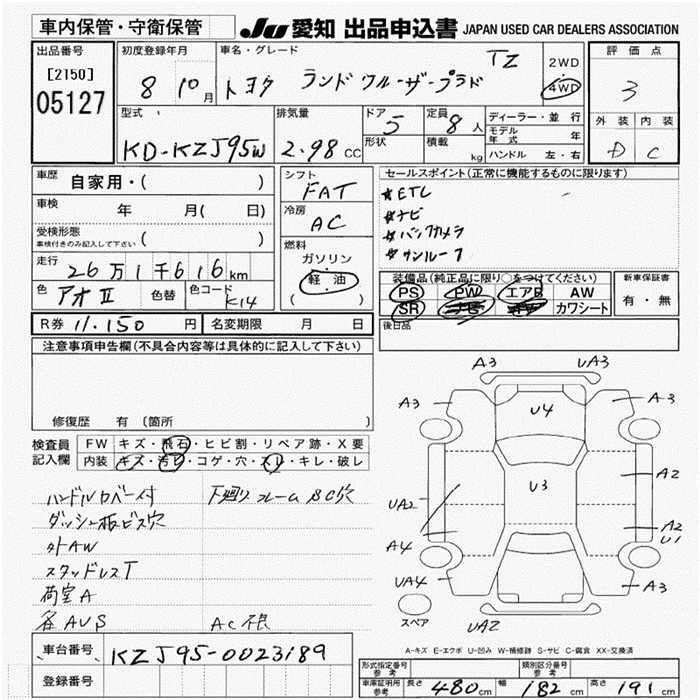 車内保管・守衛保管
JU 愛知 出品申込書 JAPAN USED CAR DEALERS ASSOCIATION
出品番号
[2150]
05127
初度登録年月
8 10月
車名・グレード
トヨタ ランドクルーザープラド TZ
2WD
4WD
評価点
3
型式
KD-KZJ95W
排気量
2.98 CC
ドア
5
形状
定員
8人
積載
kg
ディーラー・並行
モデル年式 年
ハンドル 左・右
外装 内装
D C
車歴 自家用・( )
車検 年 月( 日)
受検形態
車検付きのみ記入して下さい ( )
走行 26万1千616km
色 アオII 色替 色コード K14
シフト
FAT
冷房
AC
燃料
ガソリン
軽油
( )
セールスポイント(正常に機能するものに限ります)
*ETC
*ナビ
*バックカメラ
*サンルーフ
装備品(純正品に限り○をつけてください)
PS PW エアB AW
SR カワシート
新車保証書
有・無
後日品
R券 11.150円 名変期限 月 日
注意事項申告欄(不具合内容等は具体的に記入して下さい)
修復歴 有〔箇所 〕
検査員記入欄
FW キズ・飛石・ヒビ割・リペア跡・X要
内装 キズ・汚れ・コゲ・穴・スレ・キレ・破レ
ハンドルカバー付 下廻りフレームBC穴
ダッシュ板ビス穴
外AW
スタッドレスT
荷室A
各AUS AC根
A3 UA3
A3 U4 A3
U3
UA2 A2
A4 A2
U1
UA4 A3
スペア UA2
A-キズ E-エクボ U-凹み W-補修跡 S-サビ C-腐食 XX-交換済
車台番号 KZJ95-0023189
登録番号
形式指定番号 参考 類別区分番号 参考
車庫証明用 参考 長さ 480cm 幅 182cm 高さ 191cm